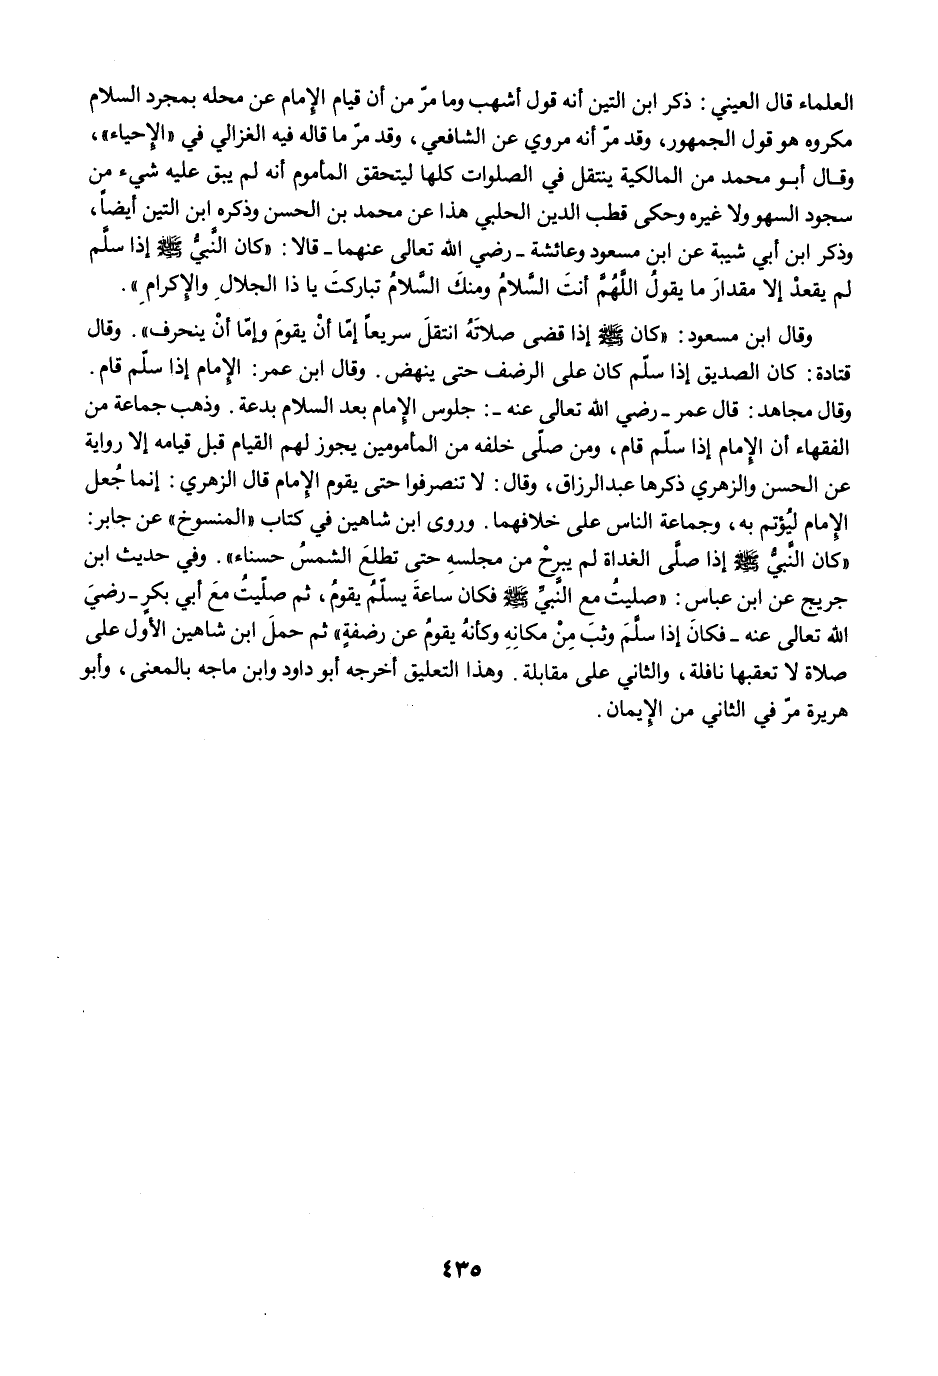 العلماء قال العيني: ذكر ابن التين أنه قول أشهب وما مرّ من أن قيام الإِمام عن محله بمجرد السلام
مكروه هو قول الجمهور، وقد مرّ أنه مروي عن الشافعي، وقد مرّ ما قاله فيه الغزالي في «الإِحياء»،
وقال أبو محمد من المالكية ينتقل في الصلوات كلها ليتحقق المأموم أنه لم يبق عليه شيء من
سجود السهو ولا غيره وحكى قطب الدين الحلبي هذا عن محمد بن الحسن وذكره ابن التين أيضاً،
وذكر ابن أبي شيبة عن ابن مسعود وعائشة ـ رضي الله تعالى عنهما ـ قالا: «كان النَّبيُّ ﷺ إذا سلَّم
لم يقعدْ إلا مقدارَ ما يقولُ اللَّهُمَّ أنتَ السَّلامُ ومنكَ السَّلامُ تباركتَ يا ذا الجلالِ والإِكرامِ».
وقال ابن مسعود: «كان ﷺ إذا قضى صلاتَهُ انتقلَ سريعاً إمّا أنْ يقومَ وإمّا أنْ ينحرف». وقال
قتادة: كان الصديق إذا سلّم كان على الرضف حتى ينهض. وقال ابن عمر: الإِمام إذا سلّم قام.
وقال مجاهد: قال عمر ـ رضي الله تعالى عنه ـ: جلوس الإِمام بعد السلام بدعة. وذهب جماعة من
الفقهاء أن الإِمام إذا سلّم قام، ومن صلّى خلفه من المأمومين يجوز لهم القيام قبل قيامه إلا رواية
عن الحسن والزهري ذكرها عبدالرزاق، وقال: لا تنصرفوا حتى يقوم الإِمام قال الزهري: إنما جُعل
الإِمام ليُؤتم به، وجماعة الناس على خلافهما. وروى ابن شاهين في كتاب «المنسوخ» عن جابر:
«كان النَّبيُّ ﷺ إذا صلَّى الغداة لم يبرحْ من مجلسهِ حتى تطلعَ الشمسُ حسناء». وفي حديث ابن
جريج عن ابن عباس: «صليتُ مع النَّبيِّ ﷺ فكان ساعةَ يسلّمُ يقومُ، ثم صلّيتُ معَ أبي بكرٍ ـ رضيَ
الله تعالى عنه ـ فكانَ إذا سلَّمَ وثبَ مِنْ مكانِهِ وكأنهُ يقومُ عن رضفةٍ» ثم حملَ ابن شاهين الأول على
صلاة لا تعقبها نافلة، والثاني على مقابلة. وهذا التعليق أخرجه أبو داود وابن ماجه بالمعنى، وأبو
هريرة مرّ في الثاني من الإِيمان.
٤٣٥